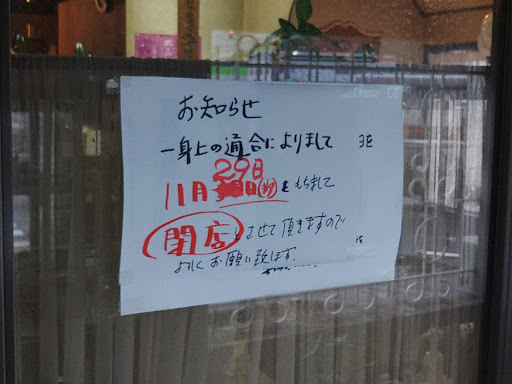 お知らせ
一身上の適合によりまして
11月29日(水)をもちまして
閉店させて頂きますので
よろしくお願い致します。